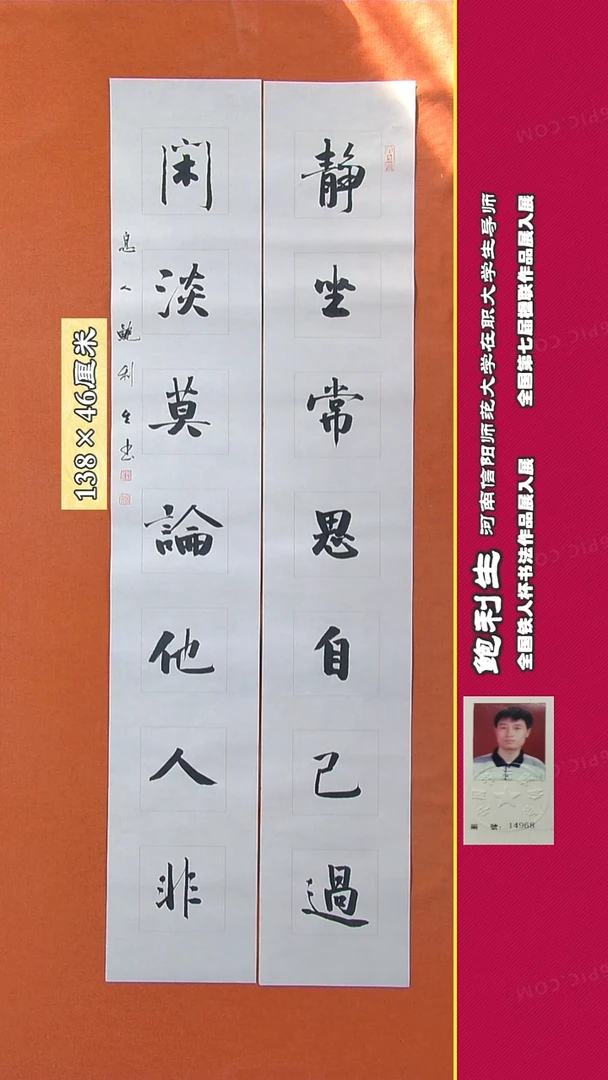 静坐常思自己過
閑淡莫論他人非
息人鲍利生书
138×46厘米
鲍利生 河南信阳师范大学在职大学生导师
全国铁人杯书法作品展入展 全国第七届楹联作品展入展
14968